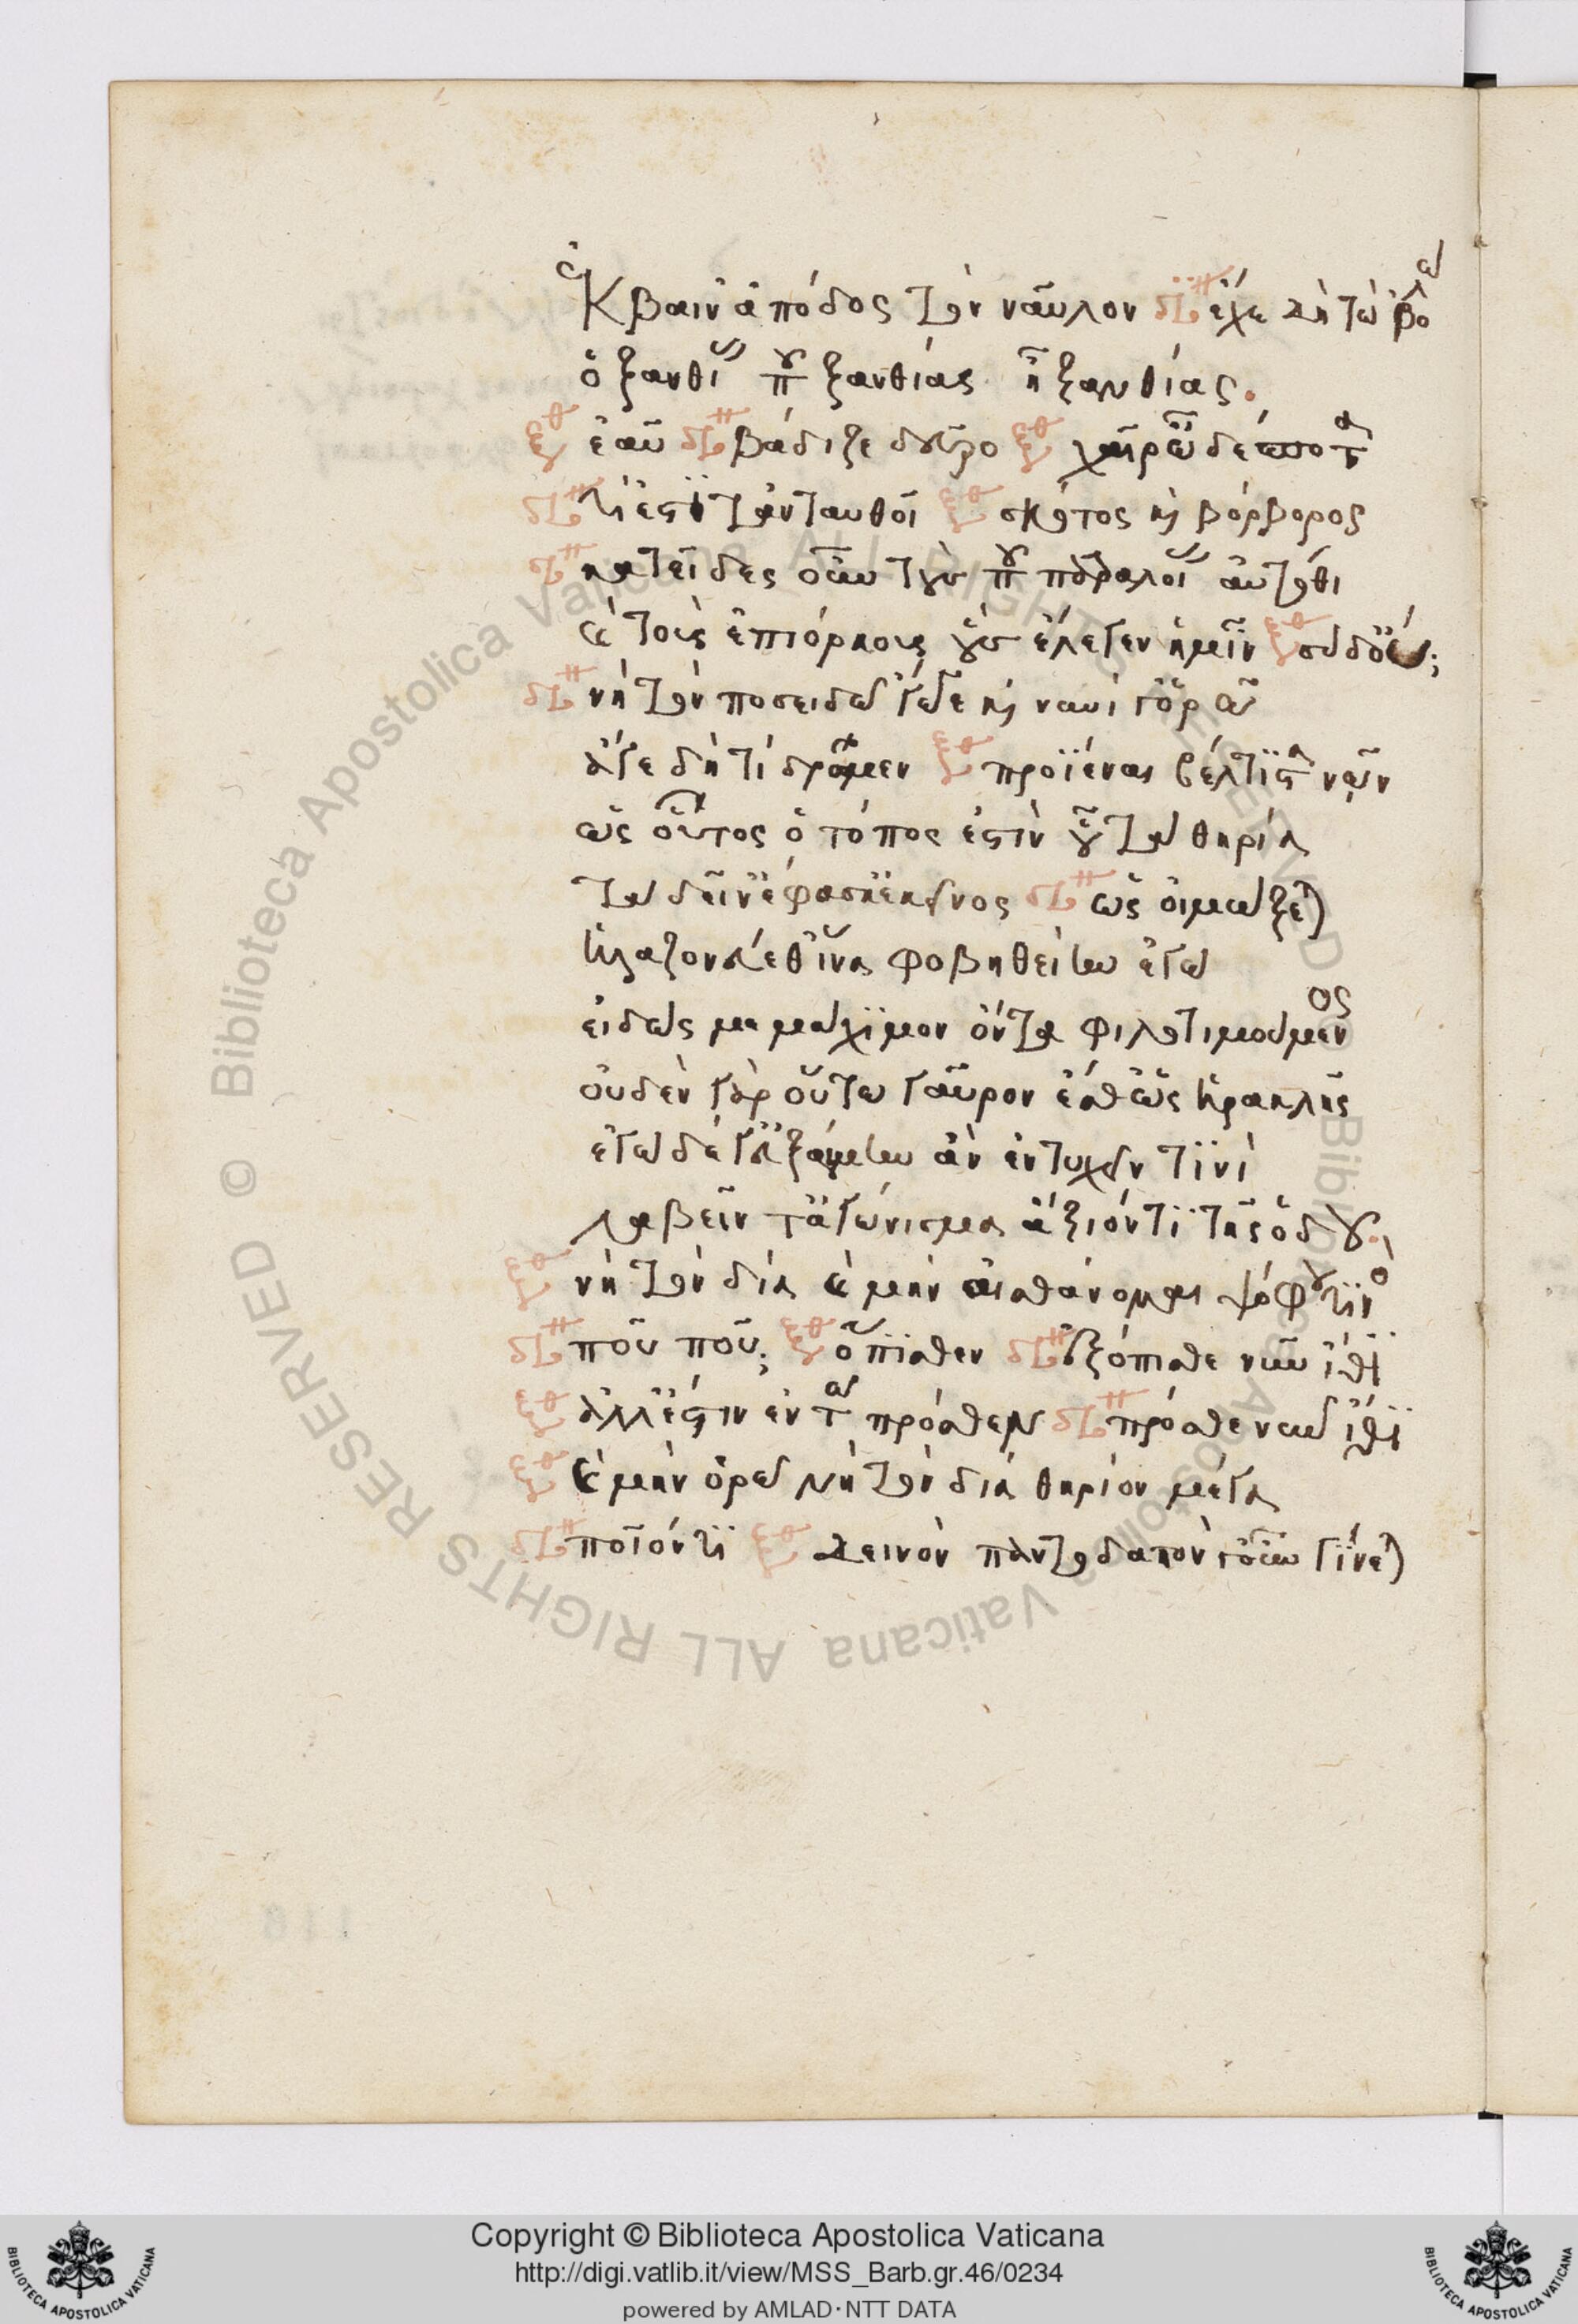 ἔκβαιν ἀπόδος τὸν ναῦλον δι ἔχε δὴ τὼ βολώ
ὁ ξανθίας ποῦ ξανθίας ἢ ξανθίας.
ξθ ἰαῦ δι βάδιζε δεῦρο ξθ χαῖρ ὦ δέσποτα
δι τί ἐστι τἀνταυθοῖ ξθ σκότος καὶ βόρβορος
δι κατεῖδες οὖν που τοὺς πατραλοίας αὐτόθι
καὶ τοὺς ἐπιόρκους οὓς ἔλεγεν ἡμῖν ξθ σὺ δοὔ;
δι νὴ τὸν ποσειδῶ γωγε καὶ νυνί γ ὁρῶ
ἄγε δὴ τί δρῶμεν ξθ προϊέναι βέλτιστα νῷν
ὡς οὗτος ὁ τόπος ἐστὶν οὗ τὰ θηρία
τὰ δείν ἔφασκ ἐκεῖνος δι ὡς οἰμώξεται
ἠλαζονεύεθ ἵνα φοβηθείην ἐγώ
εἰδώς με μάχιμον ὄντα φιλοτιμούμενος
οὐδὲν γὰρ οὕτω γαῦρον ἔσθ ὡς ἡρακλῆς
ἐγὼ δέ γ εὐξαίμην ἂν ἐντυχεῖν τινὶ
λαβεῖν τ ἀγώνισμα ἄξιόν τι τῆς ὁδοῦ.
ξθ νὴ τὸν δία καὶ μὴν αἰσθάνομαι ψόφου τινός
δι ποῦ ποῦ; ξθ ὄπισθεν δι ἐξόπισθε νῦν ἴθι
ξθ ἀλλ ἔστιν ἐν τῶ πρόσθεν δι πρόσθε νῦν ἴθι
ξθ καὶ μὴν ὁρῶ νὴ τὸν δία θηρίον μέγα
δι ποῖόν τι ξθ δεινόν παντοδαπὸν γοῦν γίνεται
Copyright © Biblioteca Apostolica Vaticana
http://digi.vatlib.it/view/MSS_Barb.gr.46/0234
powered by AMLAD·NTT DATA